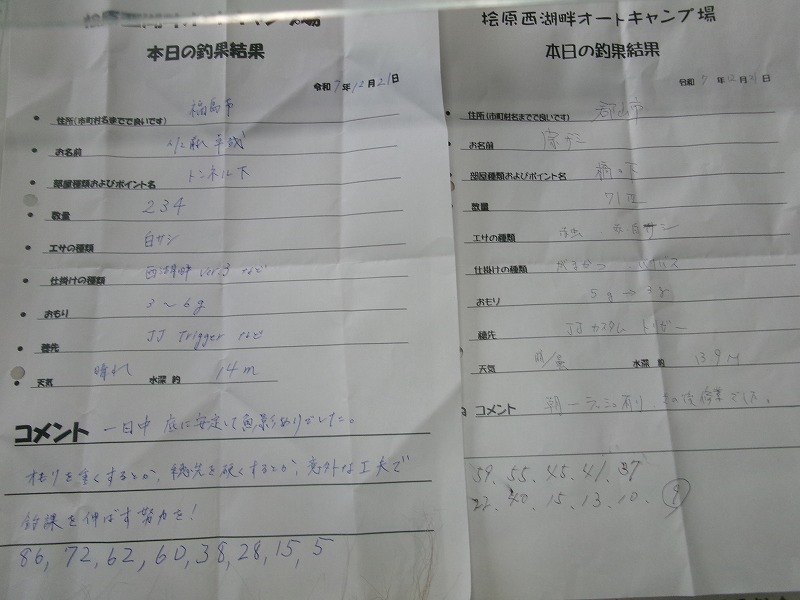 キャンプ場
本日の釣果結果
令和7年12月21日
住所(市町村名までで良いです) 福島市
お名前
部屋種類およびポイント名 トンネル下
数量 234
エサの種類 白サシ
仕掛けの種類 西湖畔 ver.3 など
おもり 3〜6g
穂先 JJ Trigger など
天気 晴れ 水深 約 14m
コメント 一日中 底に安定して魚影ありでした。
オモリを重くするとか、穂先を硬くするとか、意外な工夫で
釣課を伸ばす努力を!
86, 72, 62, 60, 38, 28, 15, 5
桧原西湖畔オートキャンプ場
本日の釣果結果
令和7年12月21日
住所(市町村名までで良いです) 郡山市
お名前
部屋種類およびポイント名 橋の下
数量 71
エサの種類 サシ
仕掛けの種類 がまかつ
おもり 5g→3g
穂先 JJカスタム トリガー
天気 晴/曇 水深 約 13.9M
コメント 朝一ラッシュ有り その後
59. 55. 45. 41. 37
22. 40. 15. 13. 10. ⑨